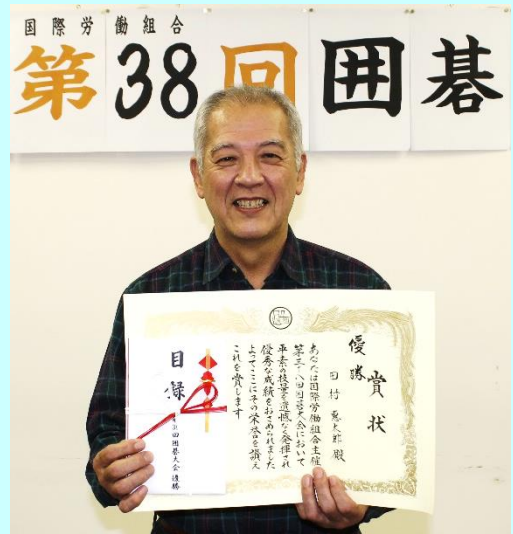 国際労働組合
第38回囲碁
賞状
優勝
田村恵太郎殿
あなたは国際労働組合主催
第三十八回囲碁大会において
平素の技量を遺憾なく発揮され
優秀な成績をおさめられました
よってここにその栄誉を讃え
これを賞します
目録
回囲碁大会 優勝